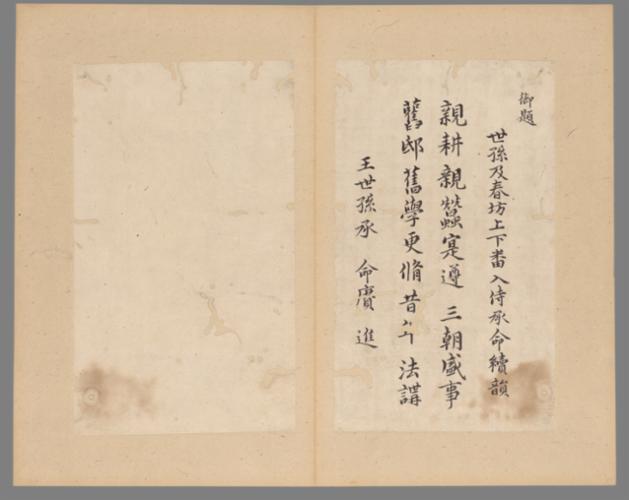 御題
世孫及春坊上下番入侍承命續韻
親耕親蠶寔遵 三朝盛事
舊邸舊學更脩昔 法講
王世孫承 命賡 進